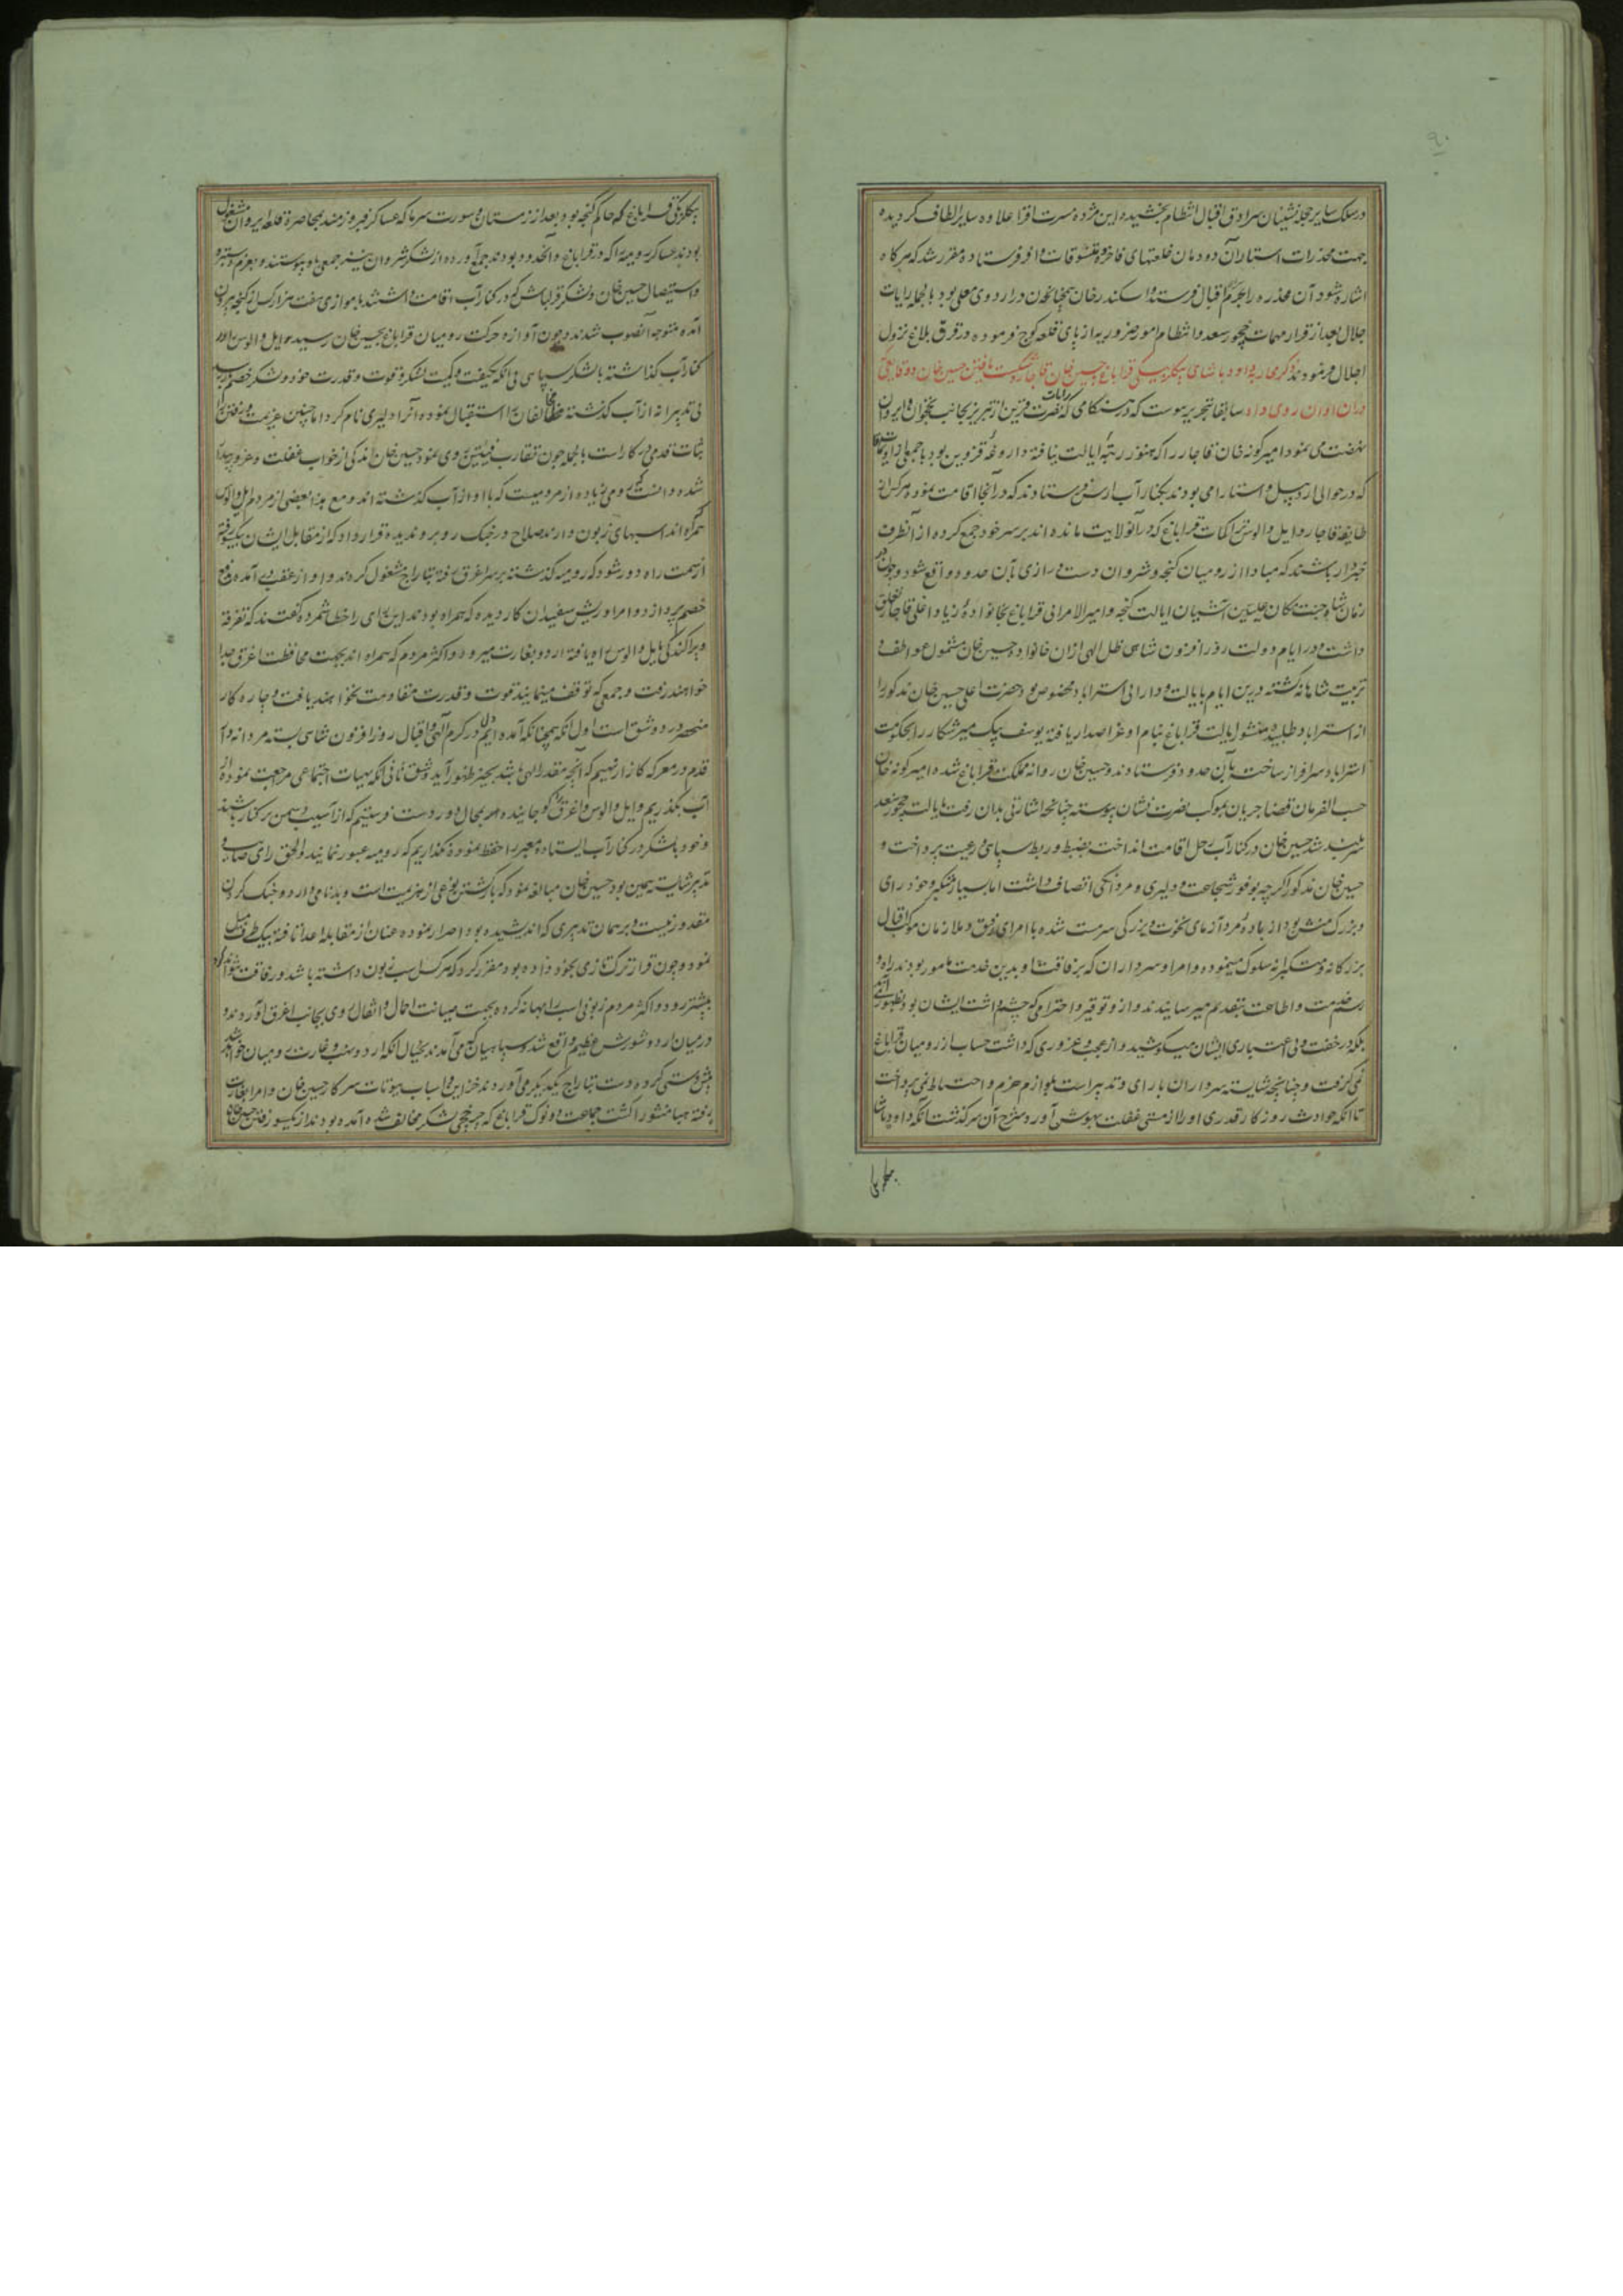 ۹۰
در سلک سایر حجله نشینان سرادق اقبال انتظام بخشیده این مژده مسرت افزا علاوه سایر الطاف گردیده
جهت مخدرات استار آن دودمان خلعتهای فاخره و تنسوقات وافر فرستاده مقرر شد که هرگاه
اشاره شود آن مخدره را بحرم اقبال فرستند و اسکندر خان همچنان در اردوی معلی بود بالجمله رایات
جلال بعد از قرار مهمات چخور سعد و انتظام امور ضروریه از پای قلعه کوچ فرموده در قرق بلاغ نزول
اجلال فرمودند ذکر محاربه داود پاشای بیکلربیکی قراباغ و حسین خان قاجار و شکست یافتن حسین خان و وقایعی که
در آن اوان روی داد سابقا تحریر پیوست که در هنگامی که رایات نصرت قرین از تبریز بجانب نخجوان و ایروان
نهضت می نمود امیرکونه خان قاجار را که هنوز رتبه ایالت نیافته داروغه قزوین بود با جمعی از اویماقات
که در حوالی اردبیل و استارا می بودند بکنار آب ارس فرستادند که در آنجا اقامت نموده هرکس از
طایفه قاجار و ایل والوس اکرات قراباغ که در آنولایت مانده اند بر سر خود جمع کرده از آنطرف
خبردار باشند که مبادا از رومیان گنجه و شروان دست درازی بآن حدود واقع شود و چون در
زمان شاه جنت مکان علیین آشیان ایالت گنجه و امیر الامرائی قراباغ بخانواده زیاد اغلی قاجار تعلق
داشت و در ایام دولت روز افزون شاهی ظل الهی از آن خانواده حسین خان مشمول عواطف و
تربیت شاهانه گشته درین ایام بایالت و دارائی استراباد مخصوص بود حضرت اعلی حسین خان مذکور را
از استراباد طلبیده منشور ایالت قراباغ بنام او عز اصدار یافته یوسف بیک میرشکار را بحکومت
استراباد سرافراز ساخته بآن حدود فرستادند و حسین خان روانه مملکت قراباغ شده امیرکونه خان
حسب الفرمان قضا جریان بموکب نصرت نشان پیوسته چنانچه اشارتی بدان رفت بایالت چخور سعد
سربلند شد حسین خان در کنار آب رحل اقامت انداخته بضبط و ربط سپاهی و رعیت پرداخت و
حسین خان مذکور اگرچه بوفور شجاعت و دلیری و مردانگی اتصاف داشت اما بسیار متکبر و خود رای
و بزرگ منش بود از باده مرد آزمای نخوت و بزرگی سرمست شده با امرای رفیق و ملازمان موکب اقبال
بزرگانه و متکبرانه سلوک مینمود و امرا و سرداران که برفاقت او بدین خدمت مامور بودند راه و
رسم خدمت و اطاعت بتقدیم میرسانیدند و از او توقیر و احترامی که چشم داشت ایشان بود بظهور نمی آمد
بلکه در خفت و بی اعتباری ایشان میکوشید و از عجب و غروری که داشت حساب از رومیان قراباغ
نمی گرفت و چنانچه شایسته سرداران با رای و تدبیر است بلوازم حزم و احتیاط نمی پرداخت
تا آنکه حوادث روزگار قدری او را از مستی غفلت بهوش آورد شرح آن سرگذشت آنکه داود پاشا
بیکلربیکی
بیکلربیکی قراباغ که حاکم گنجه بود بعد از زمستان و سورت سرما که عساکر فیروزمند بمحاصره قلعه ایروان مشغول
بودند عساکر رومیه را که در قراباغ و آنحدود بودند جمع آورده از لشکر شروان نیز جمعی باو پیوستند و بعزم دستبرد
و استیصال حسین خان و لشکر قزلباش که در کنار آب اقامت داشتند با موازی هفت هزار کس از گنجه بیرون
آمده متوجه آنصوب شدند و چون آوازه حرکت رومیان قراباغ بحسین خان رسید ایل والوس را در
کنار آب گذاشته با لشکر سپاهی بی آنکه بکیفیت و کمیت لشکر و قوت و قدرت خود و لشکر خصم وارسد
بی تدبیرانه از آب گذشته مخالفان را استقبال نموده آنرا دلیری نام کرد اما چنین عزیمت و رفتن را
ثبات قدمی در کار است بالجمله چون تقارب فئتین روی نمود حسین خان اندکی از خواب غفلت و غرور بیدار
شده دانست که رومی زیاده از مردمیست که با او از آب گذشته اند و مع هذا بعضی از مردم ایل والوس
همراه اند اسبهای زبون دارند صلاح در جنگ روبرو ندیده قرار داد که از مقابل ایشان بیکسو رفته
از سمت راه دور شود که رومیه گذشته بر سر اغرق رفته بتاراج مشغول گردند و او از عقب در آمده بدفع
خصم پردازد و امرا و ریش سفیدان کاردیده که همراه بودند این رای را خطا شمرده گفتند که تفرقه
و پراکندگی بایل والوس راه یافته اردو بغارت میرود و اکثر مردم که همراه اند بجهت محافظت اغرق جدا
خواهند رفت و جمعی که توقف مینمایند قوت و قدرت مقاومت نخواهند یافت و چاره کار
منحصر در دو شق است اول آنکه همچنانکه آمده ایم دل در کرم الهی و اقبال روز افزون شاهی بسته مردانه وار
قدم در معرکه کارزار نهیم که آنچه مقدر الهی باشد بحیز ظهور آید و شق ثانی آنکه بهیات اجتماعی مراجعت نموده از
آب بگذریم و ایل والوس و اغرق را کوچانیده بمحال دوردست فرستیم که از آسیب دشمن برکنار باشند
و خود با لشکر در کنار آب ایستاده معبر را حفظ نموده نگذاریم که رومیه عبور نمایند والحق رای صائب و
تدبیر شایسته همین بود حسین خان مبالغه نمود که برگشتن نوعی از هزیمت است و بدنامی دارد و جنگ کردن
مقدور نیست و بر همان تدبیری که اندیشیده بود اصرار نموده عنان از مقابله اعدا تافته بیک طرف میل
نمود و چون قرار ترک تازی بخود داده بود مقرر کرد که هرکس اسب زبون داشته باشد و رفاقت نتواند کرد
پیشتر رود و اکثر مردم زبونی اسب را بهانه کرده بجهت صیانت احمال و اثقال روی بجانب اغرق آوردند و
در میان اردو شورش عظیم واقع شد و سپاهیان که می آمدند بخیال آنکه اردو نهب و غارت رومیان خواهد شد
پیش دستی کرده دست بتاراج یکدیگر می آوردند خزاین و اسباب بیوتات سرکار حسین خان و امرا بغارت
رفته هباء منثورا گشت جماعت اوتوک قراباغ که چرخچی لشکر مخالف شده آمده بودند از یکسو رفتن حسین خان